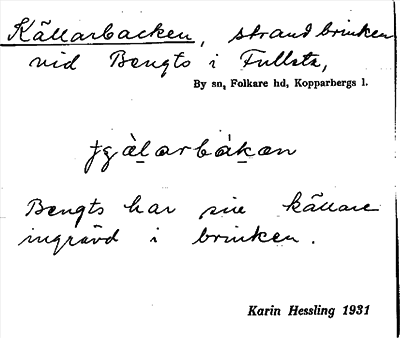 Källarbacken, strandbrinken
vid Bengts i Fullsta,
By sn, Folkare hd, Kopparbergs l.
Bengts har sin källare
ingrävd i brinken.
Karin Hessling 1931